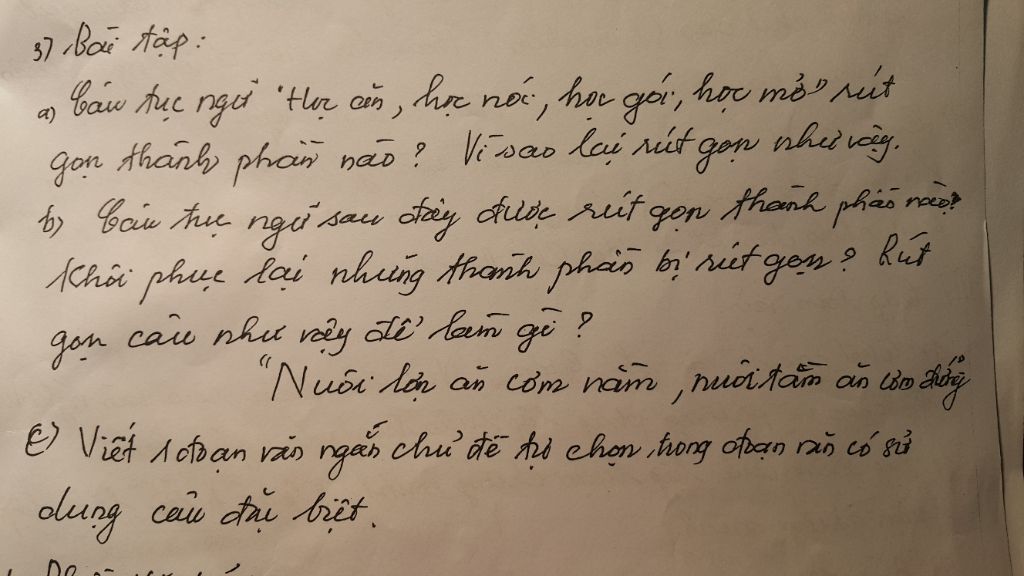 3) Bài tập:
a) Câu tục ngữ "Học ăn, học nói, học gói, học mở" rút
gọn thành phần nào? Vì sao lại rút gọn như vậy.
b) Câu tục ngữ sau đây được rút gọn thành phần nào?
Khôi phục lại những thành phần bị rút gọn? Rút
gọn câu như vậy để làm gì?
"Nuôi lợn ăn cơm nằm, nuôi tằm ăn cơm đứng"
c) Viết 1 đoạn văn ngắn chủ đề tự chọn, trong đoạn văn có sử
dụng câu đặc biệt.